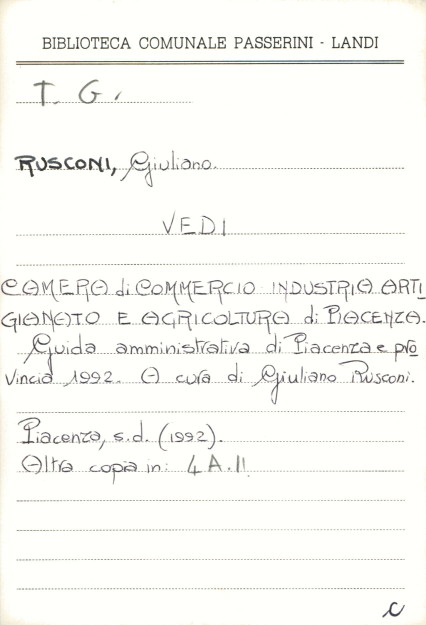 BIBLIOTECA COMUNALE PASSERINI - LANDI
T. G.
RUSCONI, Giuliano.
VEDI
CAMERA di COMMERCIO INDUSTRIA ARTI
GIANATO E AGRICOLTURA di PIACENZA.
Guida amministrativa di Piacenza e pro
vincia 1992. A cura di Giuliano Rusconi.
Piacenza, s.d. (1992).
Altra copia in: 4 A.II
C